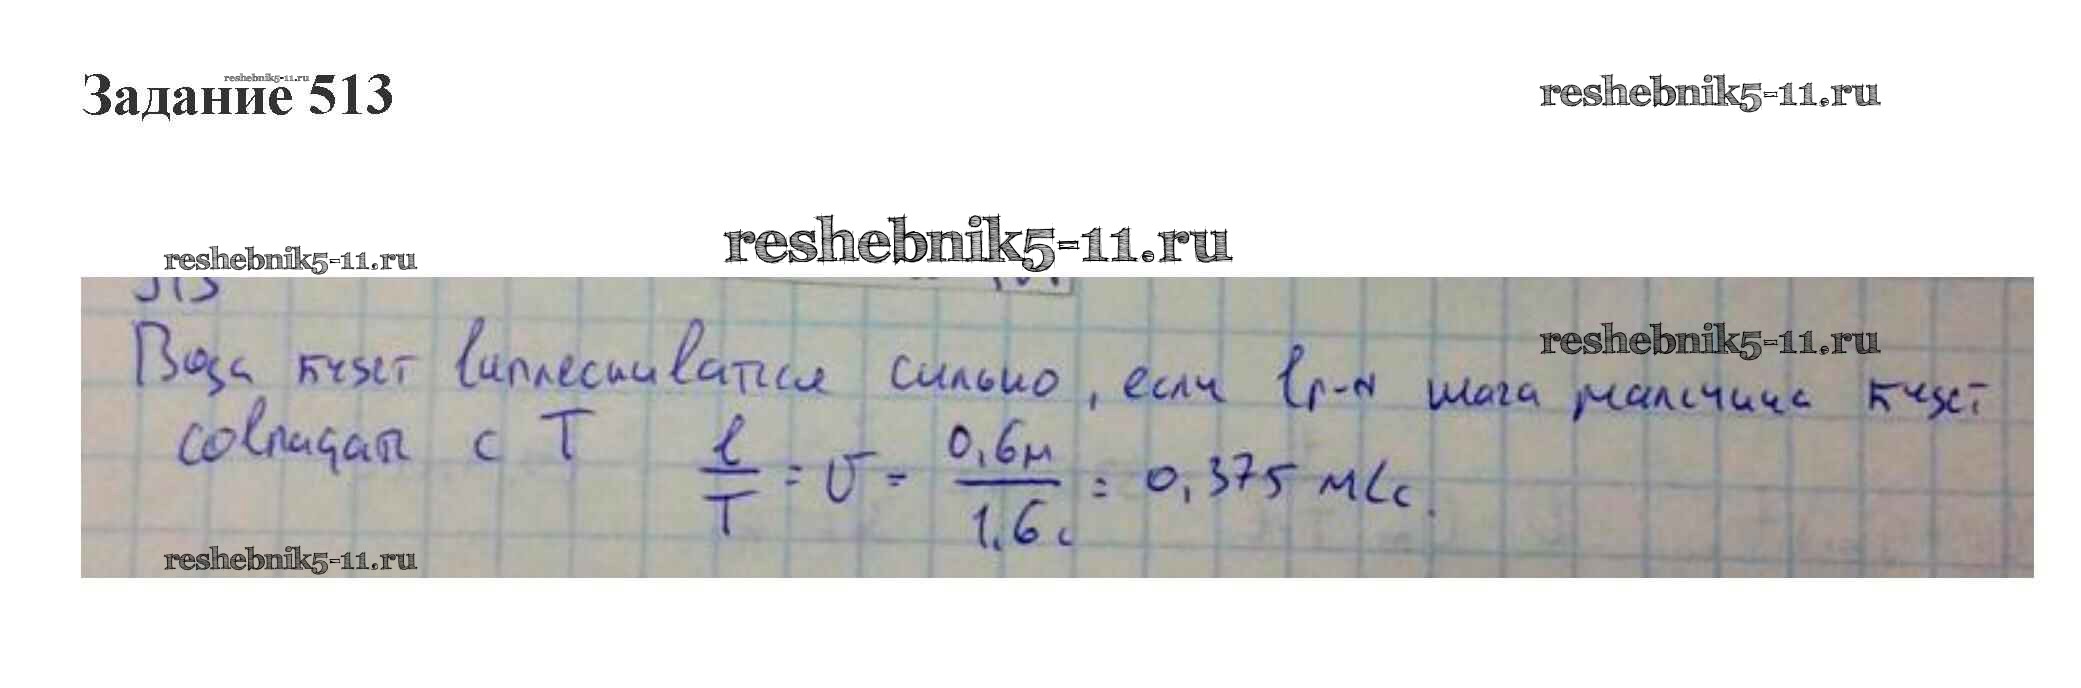 Задание 513
reshebnik5-11.ru
reshebnik5-11.ru
reshebnik5-11.ru
reshebnik5-11.ru
513
Вода будет выплескиваться сильно, если вр-я шага мальчика будет
reshebnik5-11.ru
совпадать с T l/T = υ = 0,6м/1,6с = 0,375 м/с.
reshebnik5-11.ru